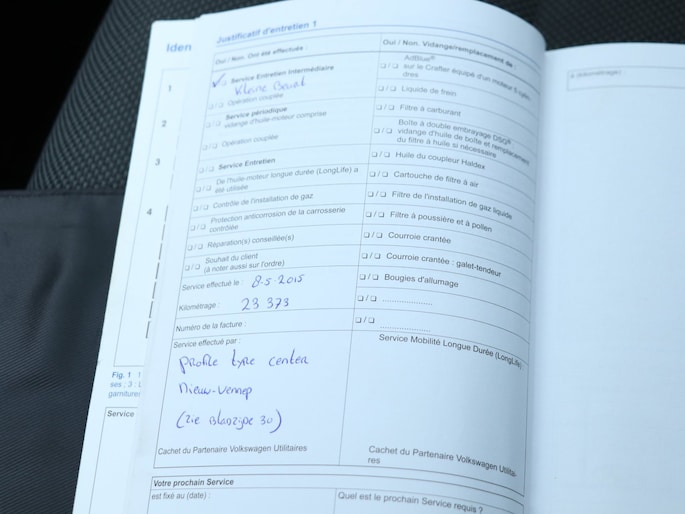 Iden
1
2
3
4
Fig. 1
ses ; 3 : L
garnitures
Service
Justificatif d'entretien 1
Oui / Non. Ont été effectués :
❑ / ❑ Service Entretien Intermédiaire
Kleine Beurt
❑ / ❑ Opération couplée
❑ / ❑ Service périodique
vidange d'huile-moteur comprise
❑ / ❑ Opération couplée
❑ / ❑ Service Entretien
❑ / ❑ De l'huile-moteur longue durée (LongLife) a
été utilisée
❑ / ❑ Contrôle de l'installation de gaz
❑ / ❑ Protection anticorrosion de la carrosserie
contrôlée
❑ / ❑ Réparation(s) conseillée(s)
❑ / ❑ Souhait du client
(à noter aussi sur l'ordre)
Service effectué le : 8-5-2015
Kilométrage : 23 373
Numéro de la facture :
Service effectué par :
profile tyre center
Nieuw-Vennep
(zie Bladzijde 30)
Cachet du Partenaire Volkswagen Utilitaires
Oui / Non. Vidange/remplacement de :
AdBlue®
❑ / ❑ sur le Crafter équipé d'un moteur
dres
❑ / ❑ Liquide de frein
❑ / ❑ Filtre à carburant
Boîte à double embrayage DSG®
❑ / ❑ vidange d'huile de boîte et remplacement
du filtre à huile si nécessaire
❑ / ❑ Huile du coupleur Haldex
❑ / ❑ Cartouche de filtre à air
❑ / ❑ Filtre de l'installation de gaz liquide
❑ / ❑ Filtre à poussière et à pollen
❑ / ❑ Courroie crantée
❑ / ❑ Courroie crantée : galet-tendeur
❑ / ❑ Bougies d'allumage
❑ / ❑ ......................
❑ / ❑ ......................
Service Mobilité Longue Durée (LongLife)
Cachet du Partenaire Volkswagen Utilitai-
res
Votre prochain Service
est fixé au (date) :
Quel est le prochain Service requis ?
à (kilométrage) :